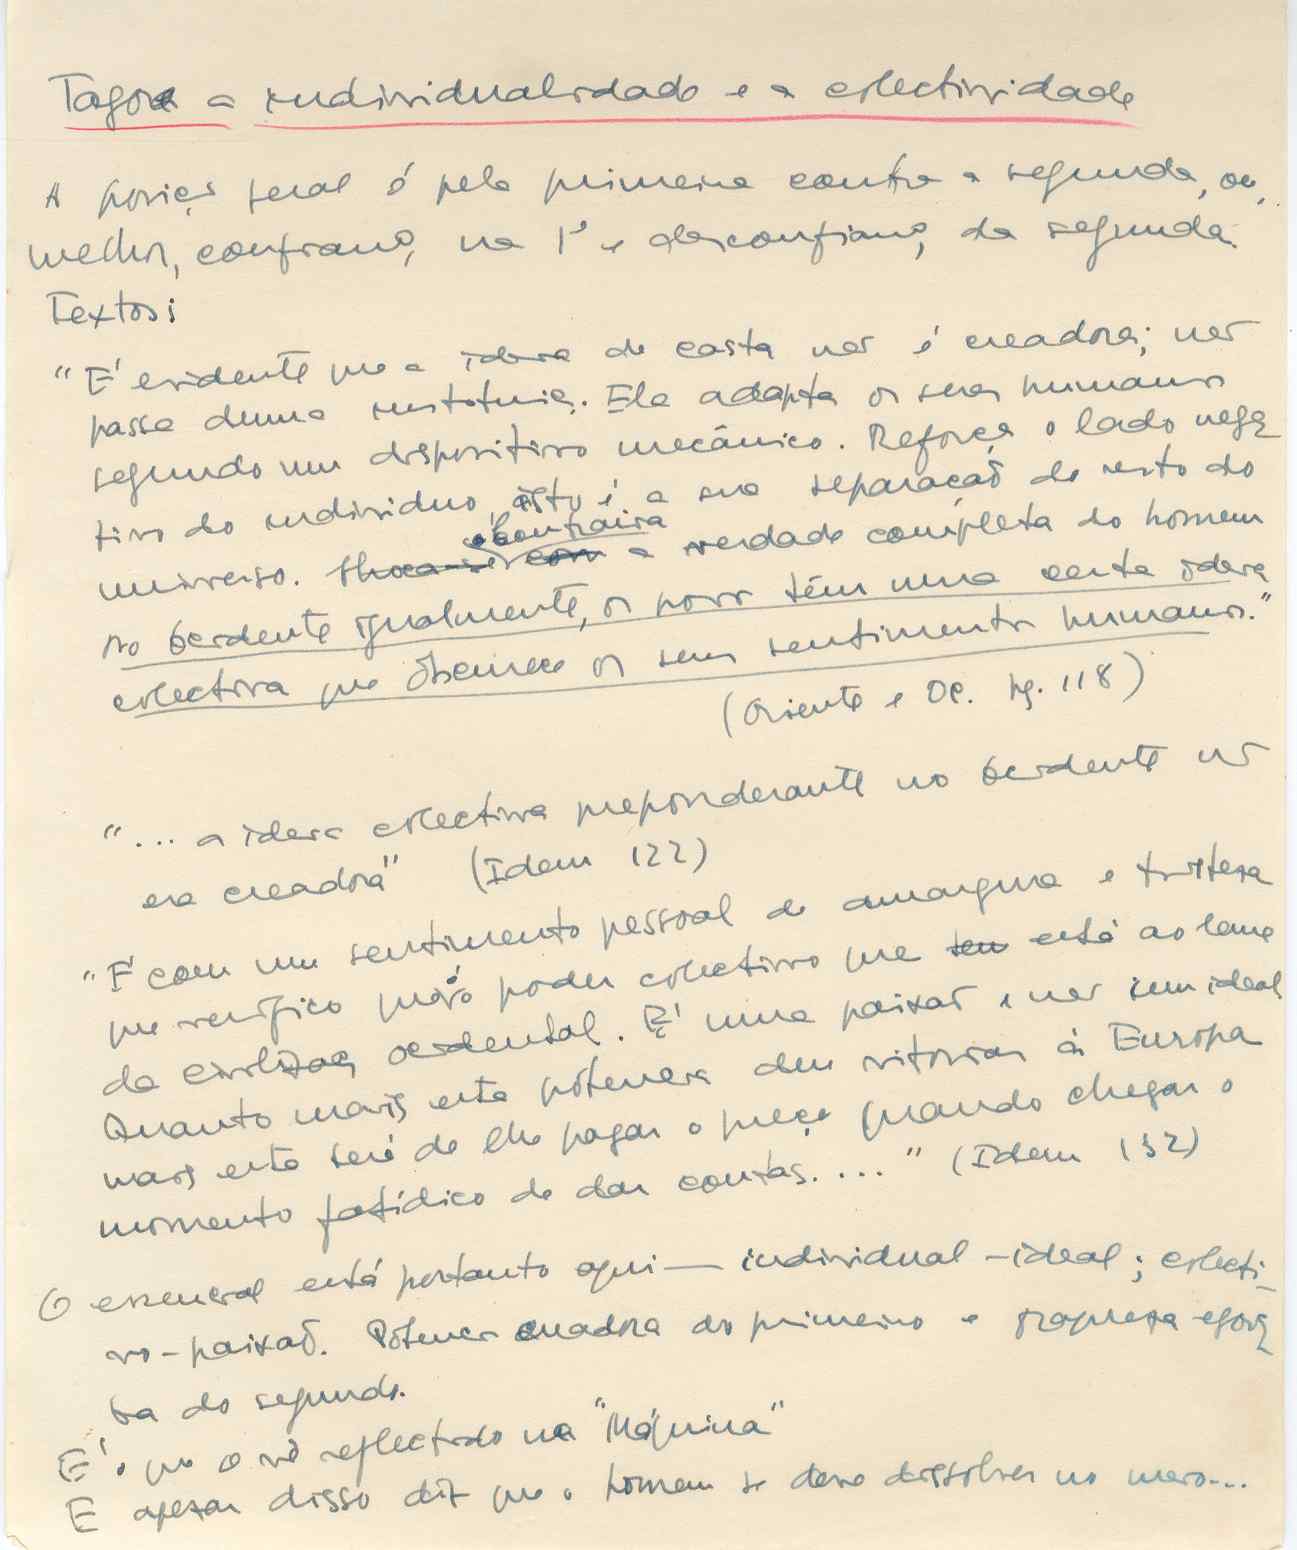 Tagore a individualidade e a colectividade
A posição geral é pela primeira contra a segunda, ou,
melhor, confiança, na 1ª e desconfiança, da segunda.
Textos:
"É evidente que a ideia de casta não é creadora; não
passa duma instituição. Ela adapta os seres humanos
segundo um dispositivo mecânico. Reforça o lado nega
tivo do individuo, isto é a sua separação do resto do
universo. contraira a verdade completa do homem
No Ocidente igualmente, os povos têm uma certa ideia
colectiva que obscurece os seus sentimentos humanos."
(Oriente e Oc. pg. 118)
"... a ideia colectiva preponderante no Ocidente não
era creadora" (Idem 122)
"É com um sentimento pessoal de amargura e tristeza
que verifico o poder colectivo que está ao leme
da civilização ocidental. É uma paixão e não um ideal
Quanto mais esta potencia deu vitorias à Europa
mais esta terá de lhe pagar o preço quando chegar o
momento fatídico de dar contas. ..." (Idem 132)
O essencial está portanto aqui — individual - ideal; colecti-
vo - paixão. Potencia creadora do primeiro e fraqueza egois
ta do segundo.
É o que o vê reflectido na "Máquina"
E apesar disso diz que o homem se deve dissolver no